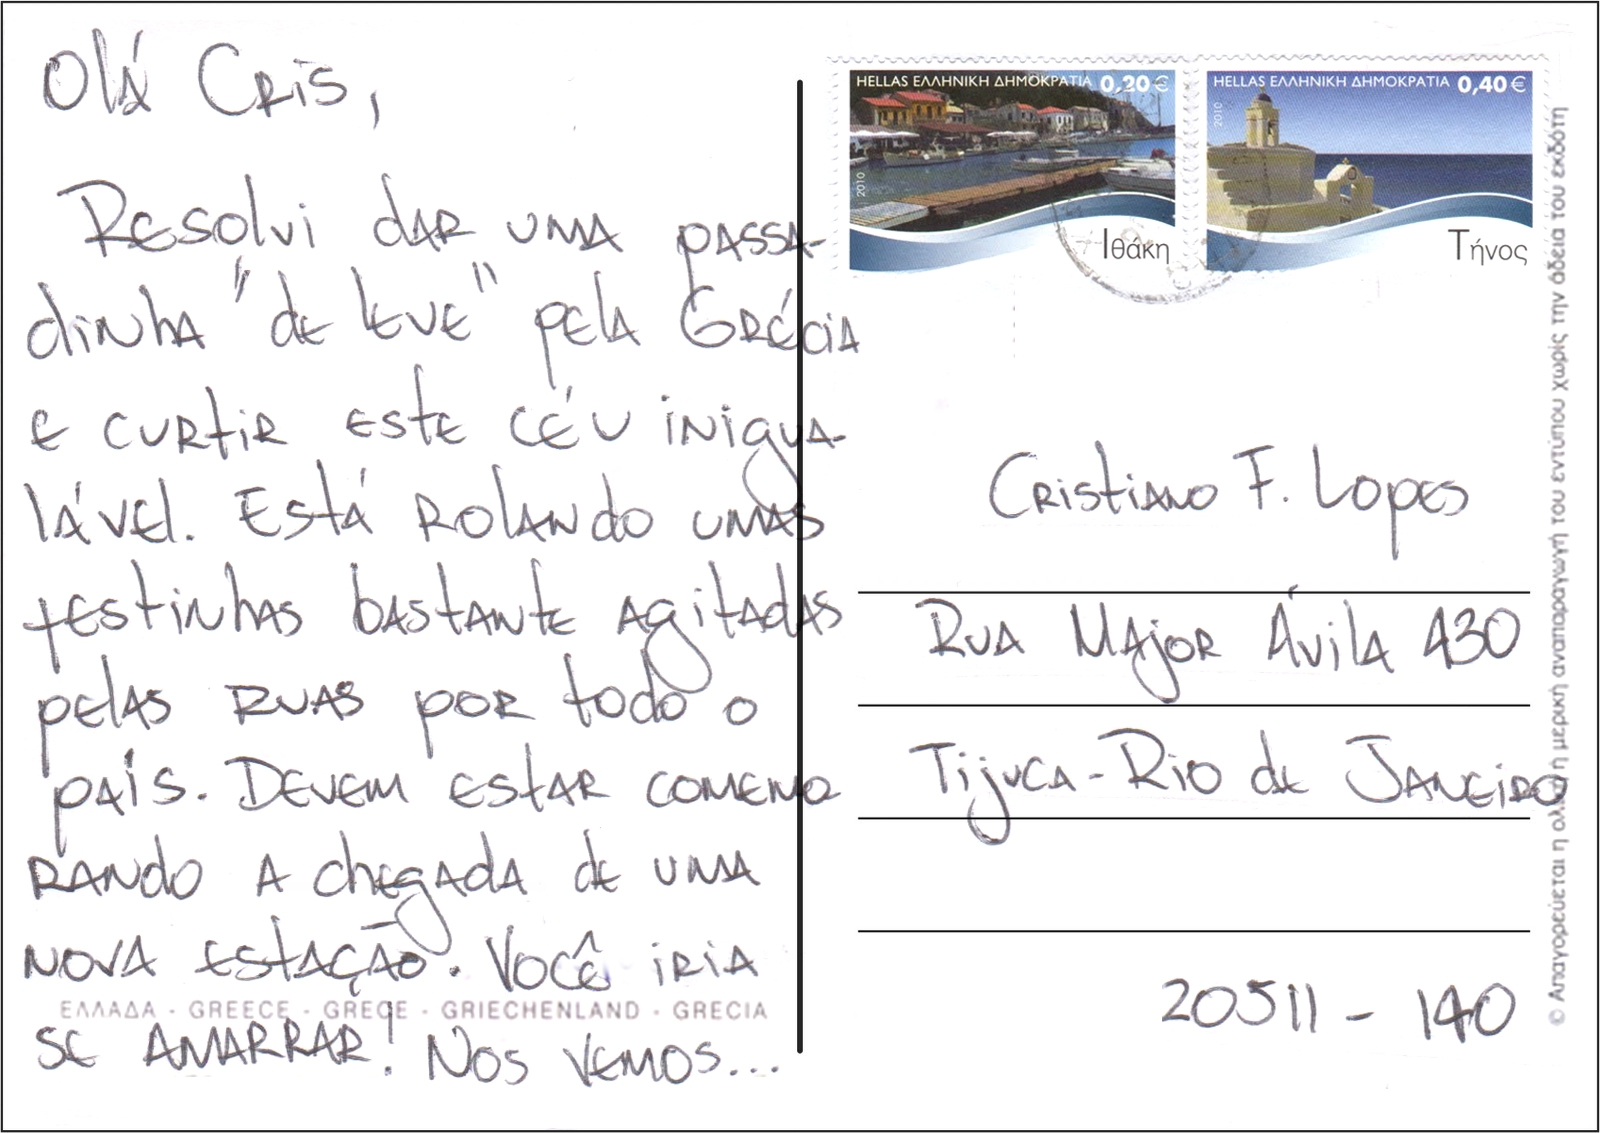 Olá Cris,
Resolvi dar uma passa-
dinha "de leve" pela Grécia
e curtir este céu inigua-
lável. Está rolando umas
festinhas bastante agitadas
pelas ruas por todo o
país. Devem estar comemo
rando a chegada de uma
nova estação. Você iria
ΕΛΛΑΔΑ - GREECE - GRECE - GRIECHENLAND - GRECIA
se amarrar! Nos vemos...
HELLAS ΕΛΛΗΝΙΚΗ ΔΗΜΟΚΡΑΤΙΑ 0,20 €
2010
Ιθάκη
HELLAS ΕΛΛΗΝΙΚΗ ΔΗΜΟΚΡΑΤΙΑ 0,40 €
2010
Τήνος
Cristiano F. Lopes
Rua Major Ávila 430
Tijuca - Rio de Janeiro
20511 - 140
© Απαγορεύεται η ολική ή μερική αναπαραγωγή του εντύπου χωρίς την άδεια του εκδότη